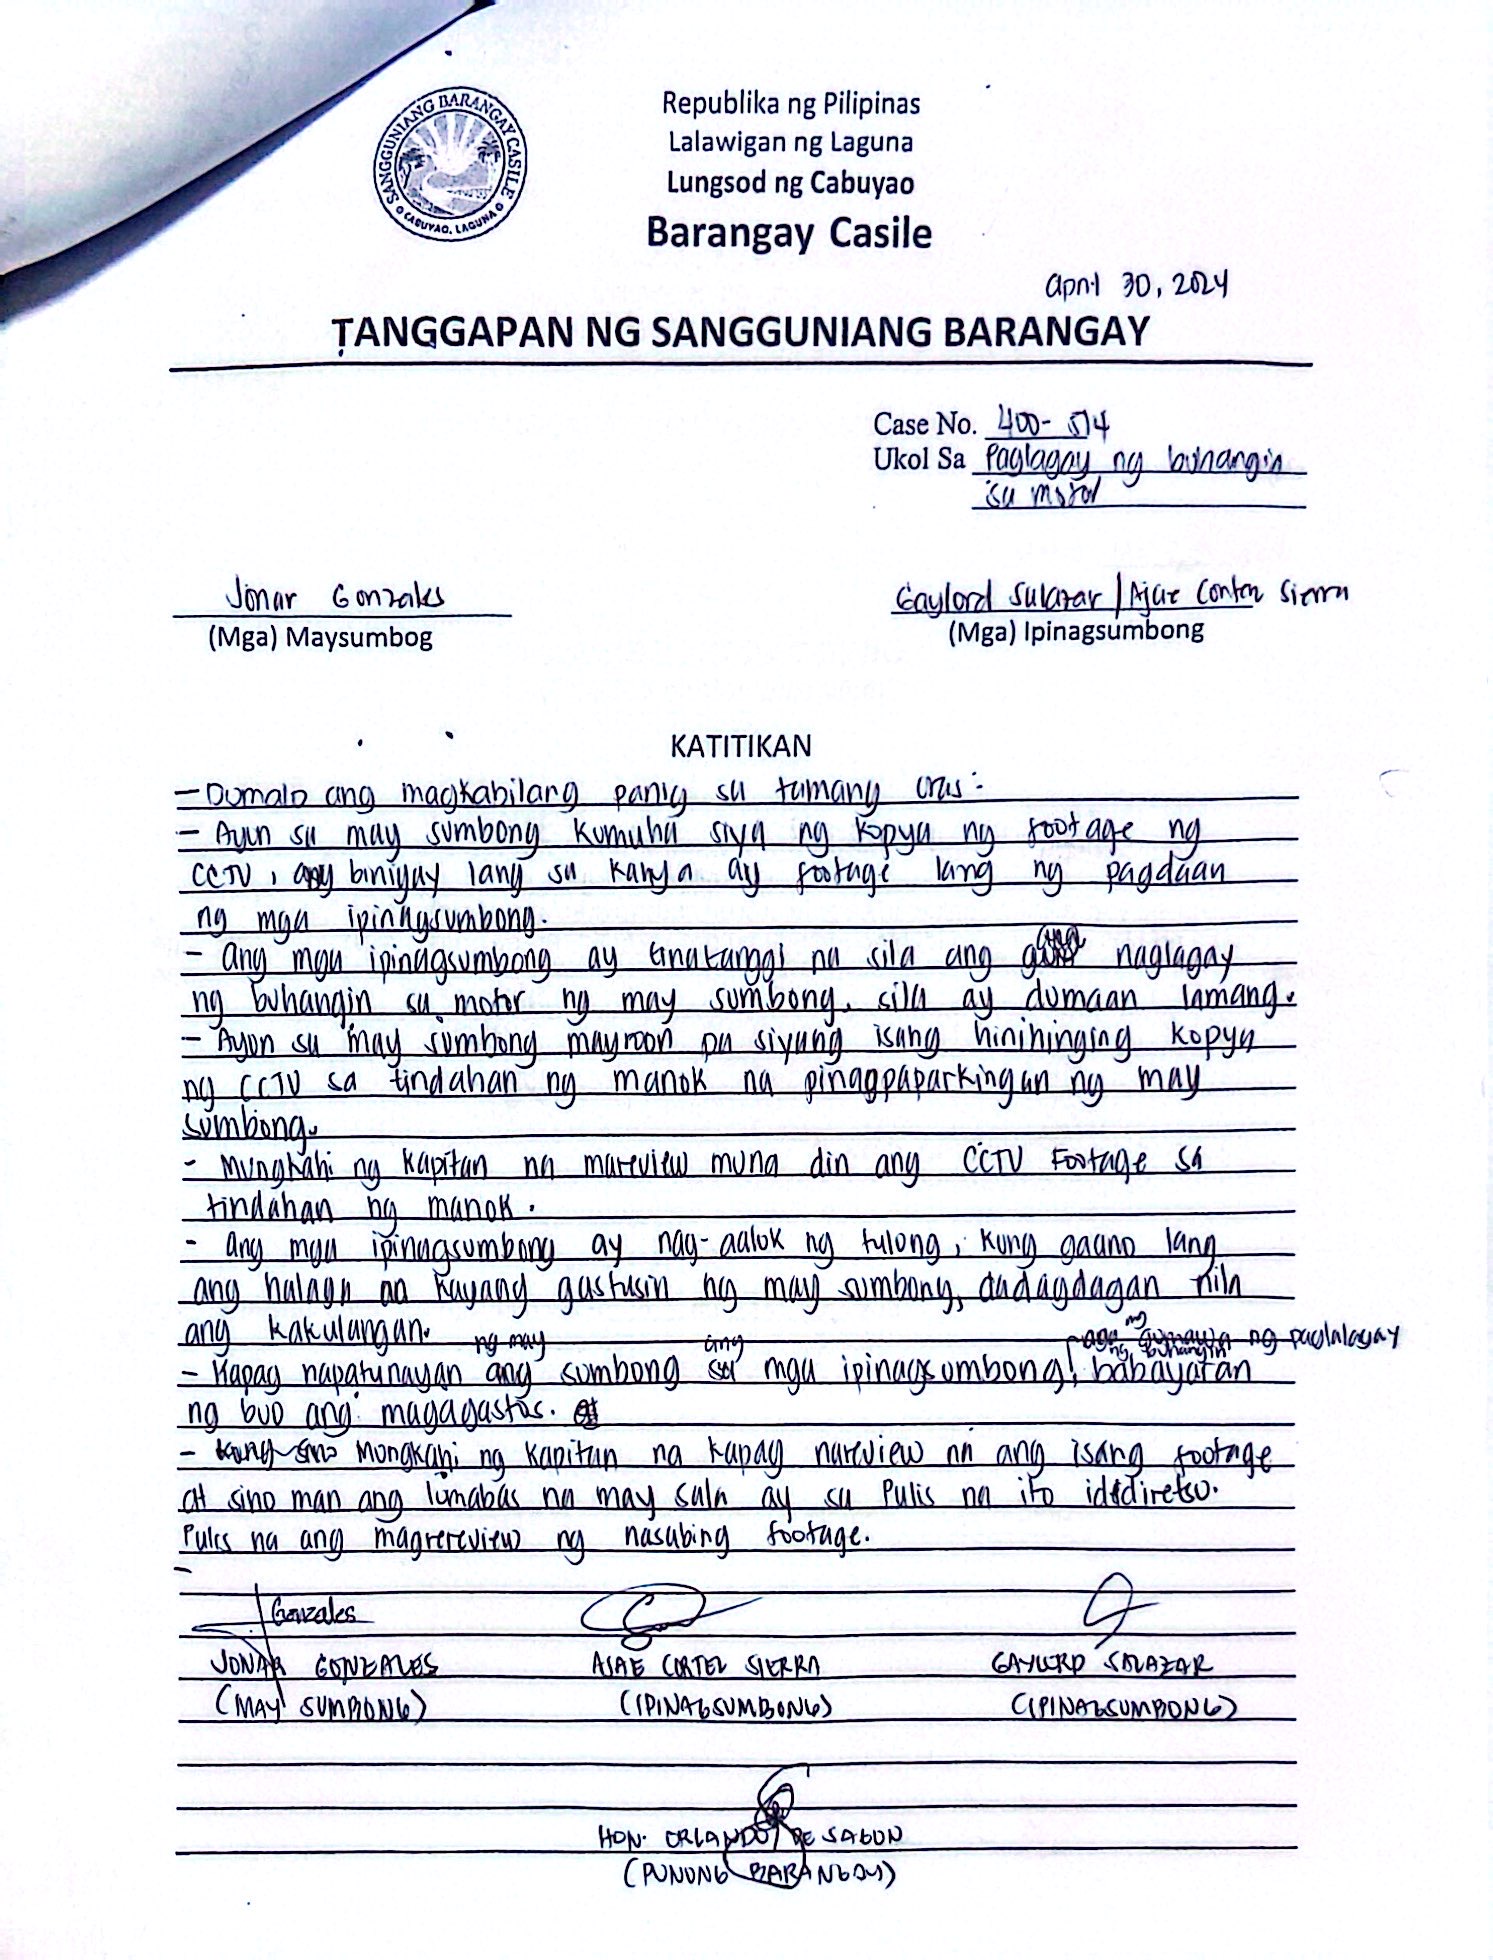 SANGGUNIANG BARANGAY CASILE
CABUYAO, LAGUNA
Republika ng Pilipinas
Lalawigan ng Laguna
Lungsod ng Cabuyao
Barangay Casile
April 30, 2024
TANGGAPAN NG SANGGUNIANG BARANGAY
Case No. 400-514
Ukol Sa Paglagay ng buhangin
sa motor
Jonar Gonzales
(Mga) Maysumbog
Gaylord Salazar / Ajae Sierra
(Mga) Ipinagsumbong
KATITIKAN
- Dumalo ang magkabilang panig sa tamang oras.
- Ayun sa may sumbong kumuha siya ng kopya ng footage ng
CCTV, ang binigay lang sa kanya ay footage lang ng pagdaan
ng mga ipinagsumbong.
- Ang mga ipinagsumbong ay tinatanggi na sila ang naglagay
ng buhangin sa motor ng may sumbong, sila ay dumaan lamang.
- Ayon sa may sumbong mayroon pa siyang isang hinihinging kopya
ng CCTV sa tindahan ng manok na pinagpaparkingan ng may
sumbong.
- Mungkahi ng kapitan na mareview muna din ang CCTV Footage sa
tindahan ng manok.
- ang mga ipinagsumbong ay nag-aalok ng tulong, kung gaano lang
ang halaga na kayang gastusin ng may sumbong, dadagdagan nila
ang kakulangan.
ng may ang ang gumawa ng paglalagay
ng buhangin
- Kapag napatunayan ang sumbong sa mga ipinagsumbong, babayaran
ng buo ang magagastos.
- Kung sino Mungkahi ng kapitan na kapag nareview na ang isang footage
at sino man ang lumabas na may sala ay sa Pulis na ito ididiretso.
Pulis na ang magrereview ng nasabing footage.
-
Gonzales
JONAR GONZALES
AJAE CORTEL SIERRA
GAYLORD SALAZAR
(MAY SUMBONG)
(IPINAGSUMBONG)
(IPINAGSUMBONG)
HON. ORLANDO DE SAGUN
(PUNONG BARANGAY)